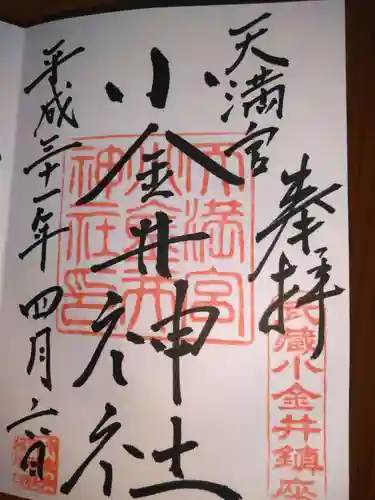 奉拝
天満宮
小金井神社
平成三十一年四月六日
武蔵小金井鎮座
天満宮
神社印